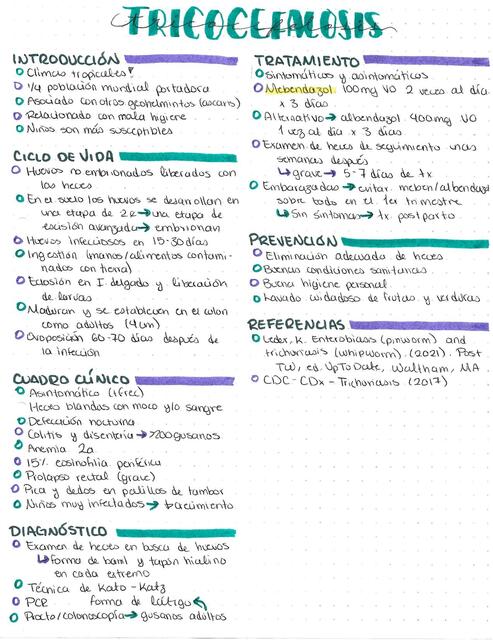 TRICOCEFALOSIS
INTRODUCCIÓN
Climas tropicales
1/4 población mundial portadora
Asociado con otros geohelmintos (ascaris)
Relacionado con mala higiene
Niños son más susceptibles
CICLO DE VIDA
Huevos no embrionados liberados con
las heces
En el suelo los huevos se desarrollan en
una etapa de 2c → una etapa de
escisión avanzada → embrionan
Huevos infecciosos en 15-30 días
Ingestión (manos/alimentos contami-
nados con tierra)
Eclosión en I. delgado y liberación
de larvas
Maduran y se establecen en el colon
como adultos (4cm)
Oviposición 60-70 días después de
la infección
CUADRO CLÍNICO
Asintomático (1 frec)
Heces blandas con moco y/o sangre
Defecación nocturna
Colitis y disentería → >200 gusanos
Anemia 2a
15% eosinofilia periférica
Prolapso rectal (grave)
Pica y dedos en palillos de tambor
Niños muy infectados → ↓ crecimiento
DIAGNÓSTICO
Examen de heces en busca de huevos
↳ forma de barril y tapón hialino
en cada extremo
Técnica de Kato-Katz
PCR forma de látigo
Procto/colonoscopía → gusanos adultos
TRATAMIENTO
Sintomáticos y asintomáticos
Mebendazol 100mg VO 2 veces al día
x 3 días
Alternativo → albendazol 400mg VO
1 vez al día x 3 días
Examen de heces de seguimiento unas
semanas después
↳ grave → 5-7 días de tx
Embarazadas → evitar meben/albendazol
sobre todo en el 1er trimestre
↳ Sin síntomas → tx postparto
PREVENCIÓN
Eliminación adecuada de heces
Buenas condiciones sanitarias
Buena higiene personal
Lavado cuidadoso de frutas y verduras
REFERENCIAS
Leder, K. Enterobiasis (pinworm) and
trichuriasis (whipworm). (2021). Post
TW, ed. UpToDate, Waltham, MA
CDC - CDx - Trichuriasis (2017)